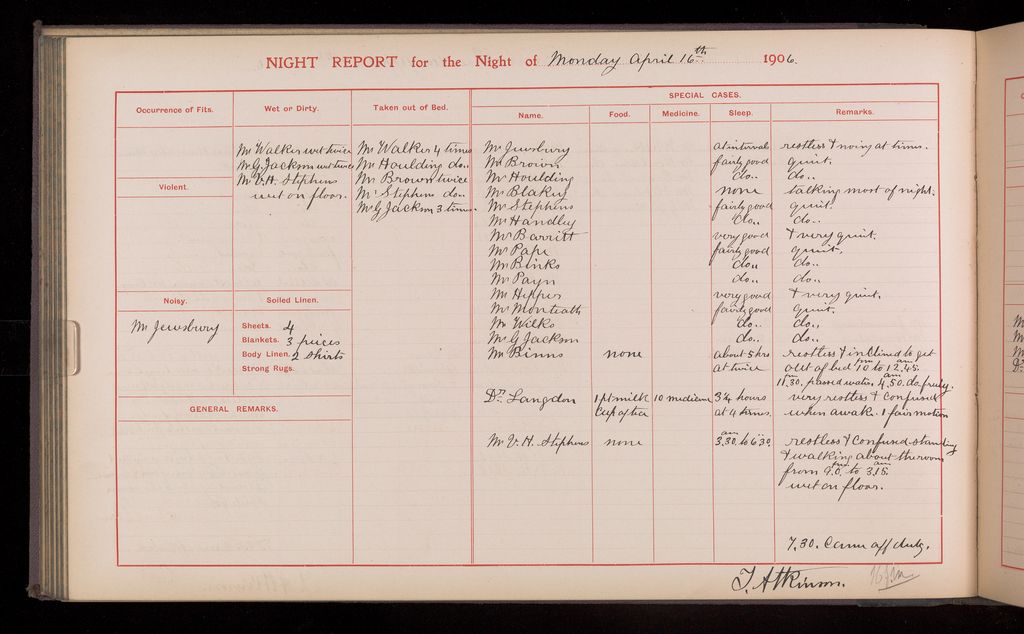 NIGHT REPORT for the Night of Monday April 16th 1906.
SPECIAL CASES.
Occurrence of Fits. Wet or Dirty. Taken out of Bed. Name. Food. Medicine. Sleep. Remarks.
Mr Walker wet twice
Mr G Jackson wet twice
Mr V.H. Stephens
wet on floor.
Mr Walker 4 times
Mr Houlding do..
Mr Brown twice
Mr Stephens do..
Mr G Jackson 3 times
Violent.
Noisy.
Mr Jewsbury
Soiled Linen.
Sheets. 4
Blankets. 3 pieces
Body Linen. 2 shirts
Strong Rugs.
GENERAL REMARKS.
Mr Jewsbury at intervals restless & noisy at times.
Mr Brown fairly good quiet.
Mr Houlding do.. do..
Mr Blakey none talking most of night.
Mr Stephens fairly good quiet.
Mr Handley do.. do..
Mr Barritt very good & very quiet.
Mr Pape fairly good quiet.
Mr Binks do.. do..
Mr Payn do.. do..
Mr very good & very quiet.
Mr Monteath fairly good quiet.
Mr Wilks do.. do..
Mr G Jackson do.. do..
Mr Binns none about 5 hrs restless & inclined to get
at twice out of bed 10 pm to 12.45. am
11.30. pm passed water, 4.50. am do. freely.
Dr. Langdon 1 pt milk 10 medicine 3¼ hours very restless & confused
cup of tea at 4 times. when awake. 1 fair motion
Mr V.H. Stephens none 3.30. am to 6.30 restless & confused standing
& walking about the room
from 9.0. pm to 3.15. am
wet on floor.
7.30. Came off duty.
T. Atkinson.